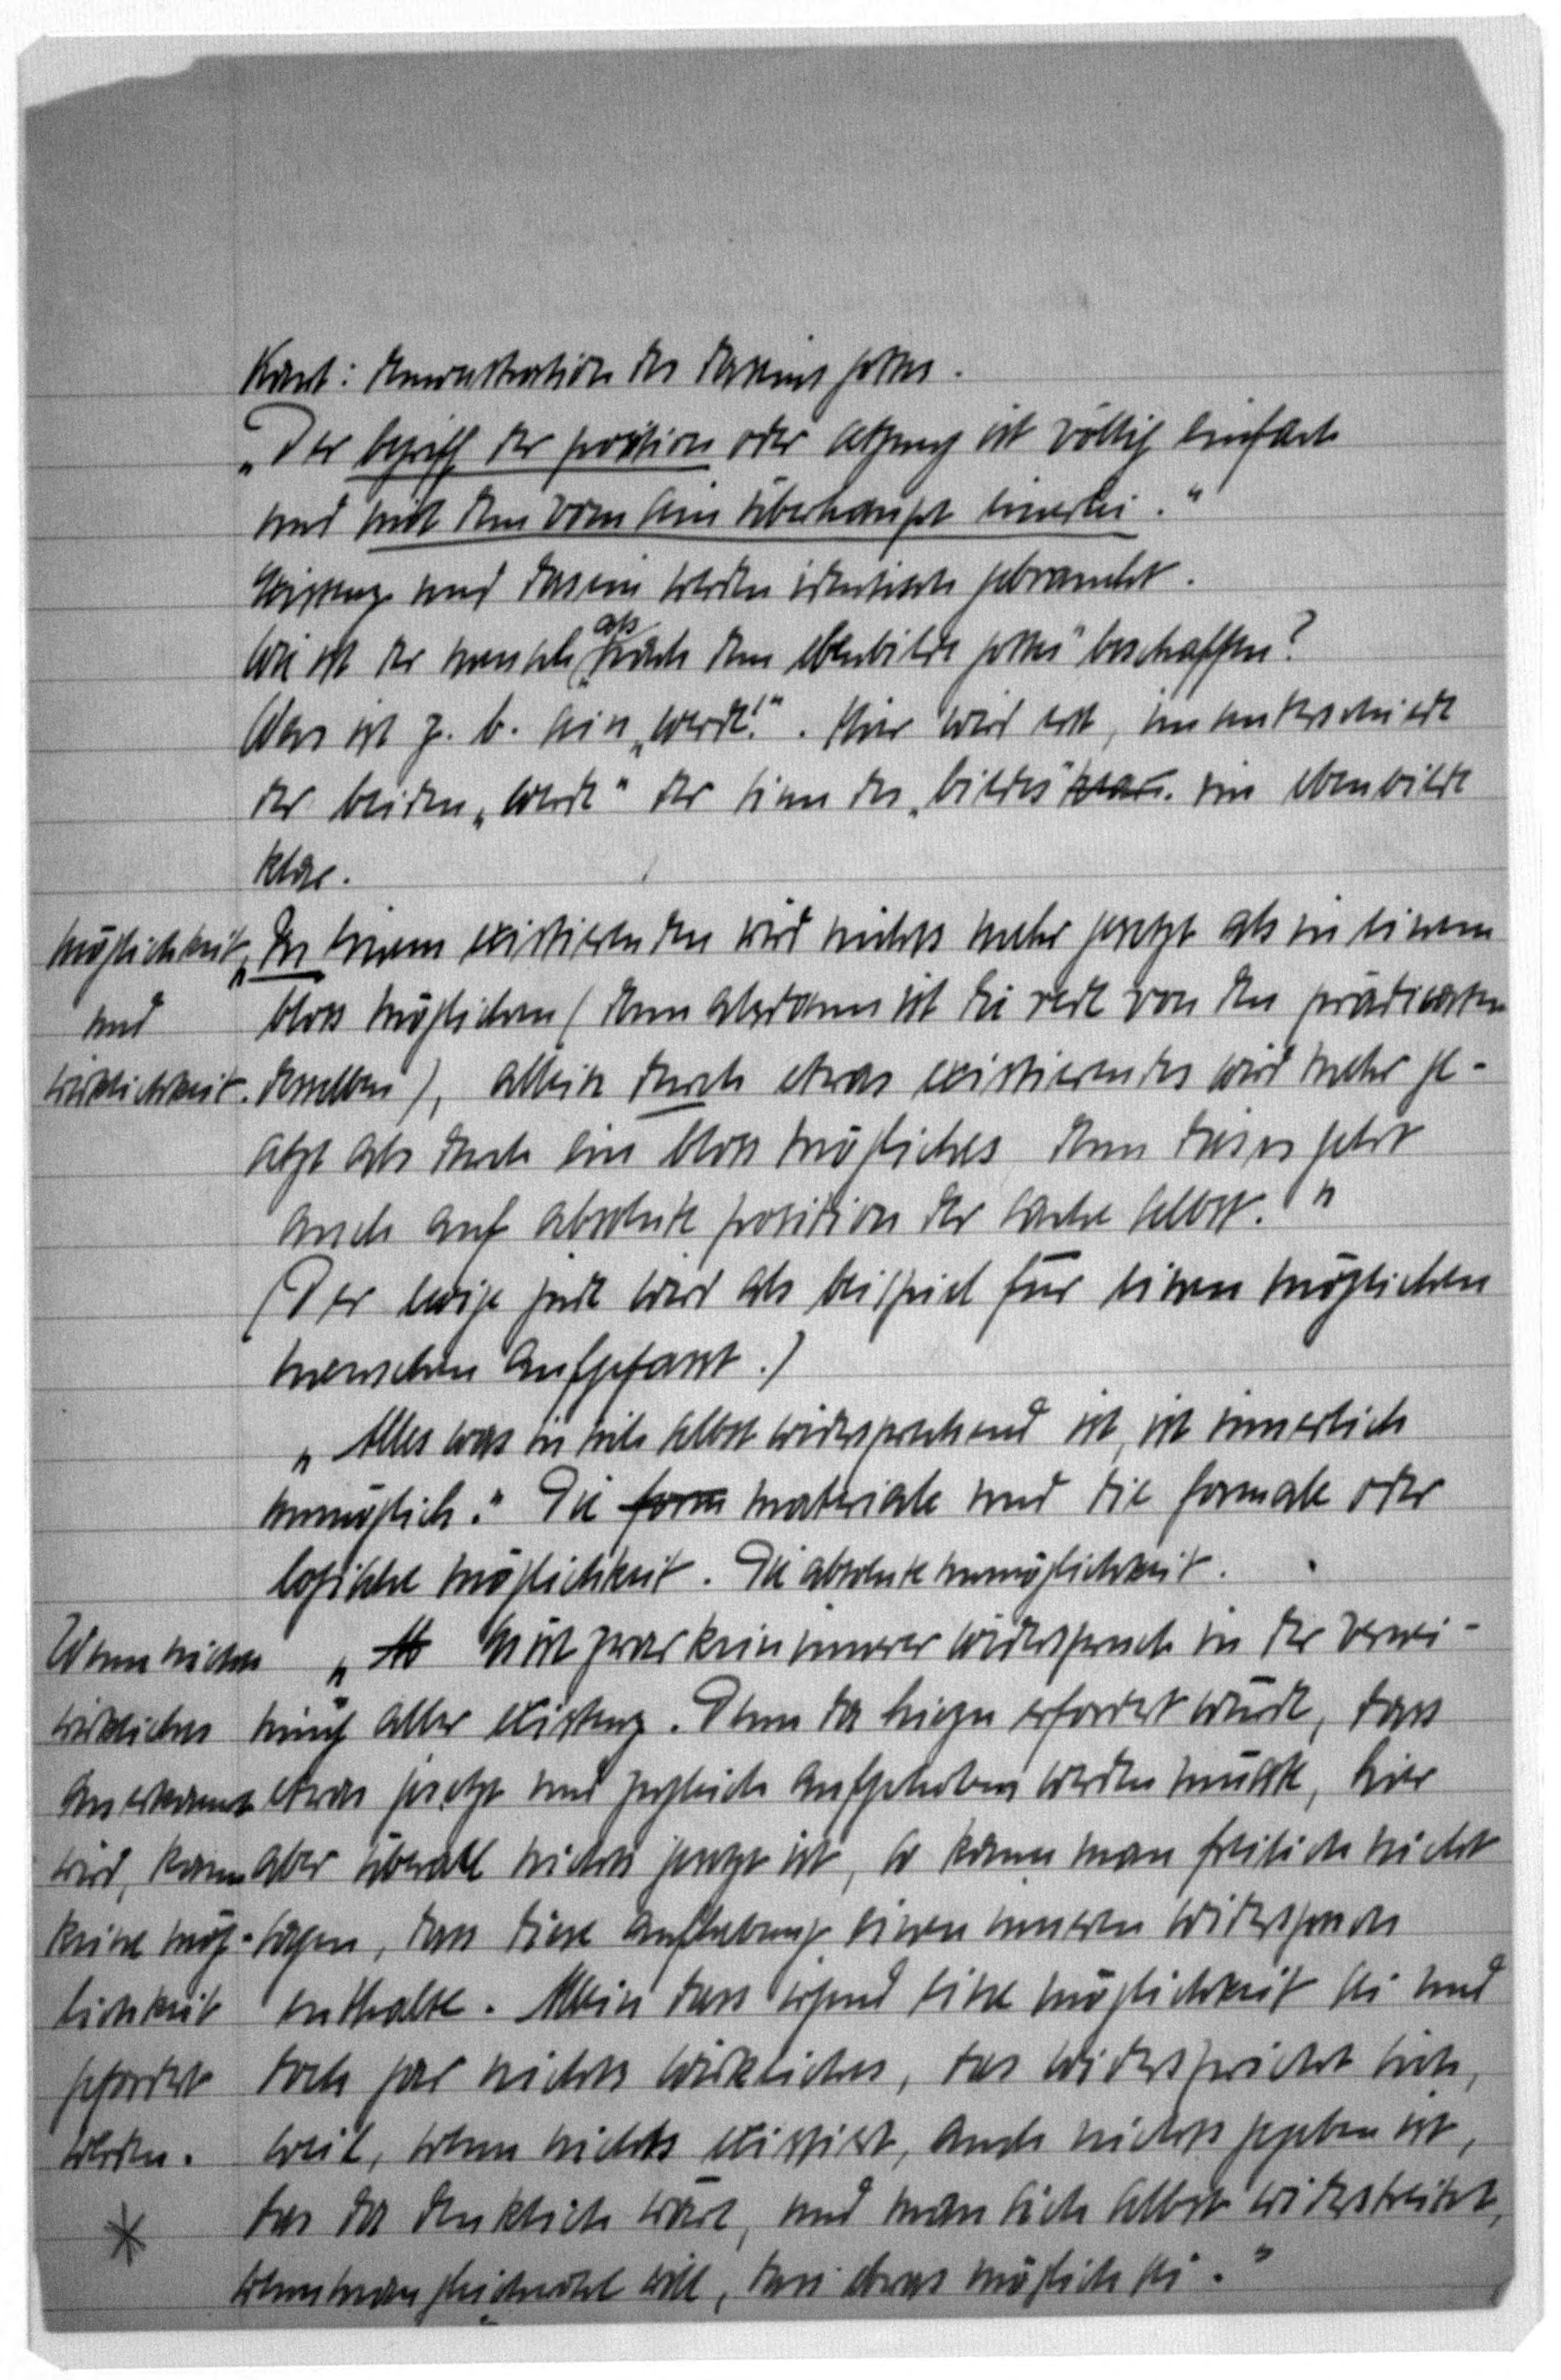 Kant: demonstration des daseins gottes.
„Der begriff der position oder setzung ist völlig einfach
und mit dem vom sein überhaupt einerlei."
Existenz und dasein werden identisch gebraucht.
Wie ist der mensch als „nach dem ebenbilde gottes" beschaffen?
Was ist z. b. sein „werde!". Hier wird erst, im unterschiede
der beiden „werde" der sinn des „bildes" klar. im ebenbilde
klar.
Möglichkeit
und
wirklichkeit.
„In einem existierenden wird nichts mehr gesetzt als in einem
bloss möglichen (denn alsdann ist die rede von den prädicaten
desselben), allein durch etwas existierendes wird mehr ge-
setzt als durch ein bloss mögliches denn dieses geht
auch auf absolute position der sache selbst."
(Der ewige jude wird als beispiel für einen möglichen
menschen aufgefasst.)
„Alles was in sich selbst widersprechend ist, ist innerlich
unmöglich." Die form materiale und die formale oder
logische möglichkeit. Die absolute unmöglichkeit.
Wenn nichts
wirkliches
anerkannt
wird, kann
keine mög-
lichkeit
gefordert
werden.
*
„Es ist zwar kein innerer widerspruch in der vernei-
nung aller existenz. Denn da hiezu erfordert würde, dass
etwas gesetzt und zugleich aufgehoben werden müsste, hier
aber überall nichts gesetzt ist, so kann man freilich nicht
sagen, dass diese aufhebung einen inneren widerspruch
enthalte. Allein dass irgend eine möglichkeit sei und
doch gar nichts wirkliches, das widerspricht sich,
weil, wenn nichts existiert, auch nichts gegeben ist,
das da denklich wäre, und man sich selbst widerstreitet,
wenn man gleichwohl will, dass etwas möglich sei."